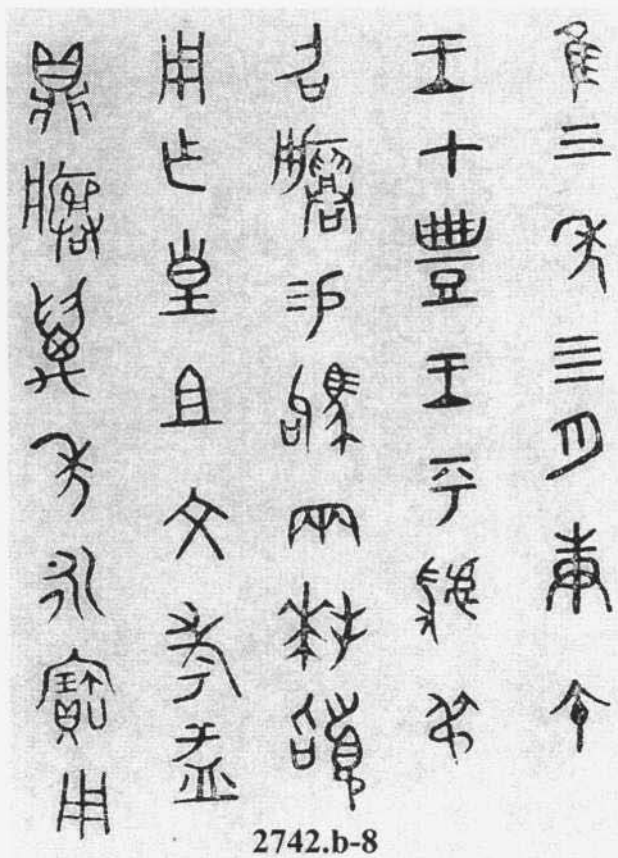 隹三年亖月庚午
王才豐王乎虢叔
召𤼈易駒兩拜𩒨
用乍皇且文考盂
鼎𤼈萬年永寶用
2742.b-8